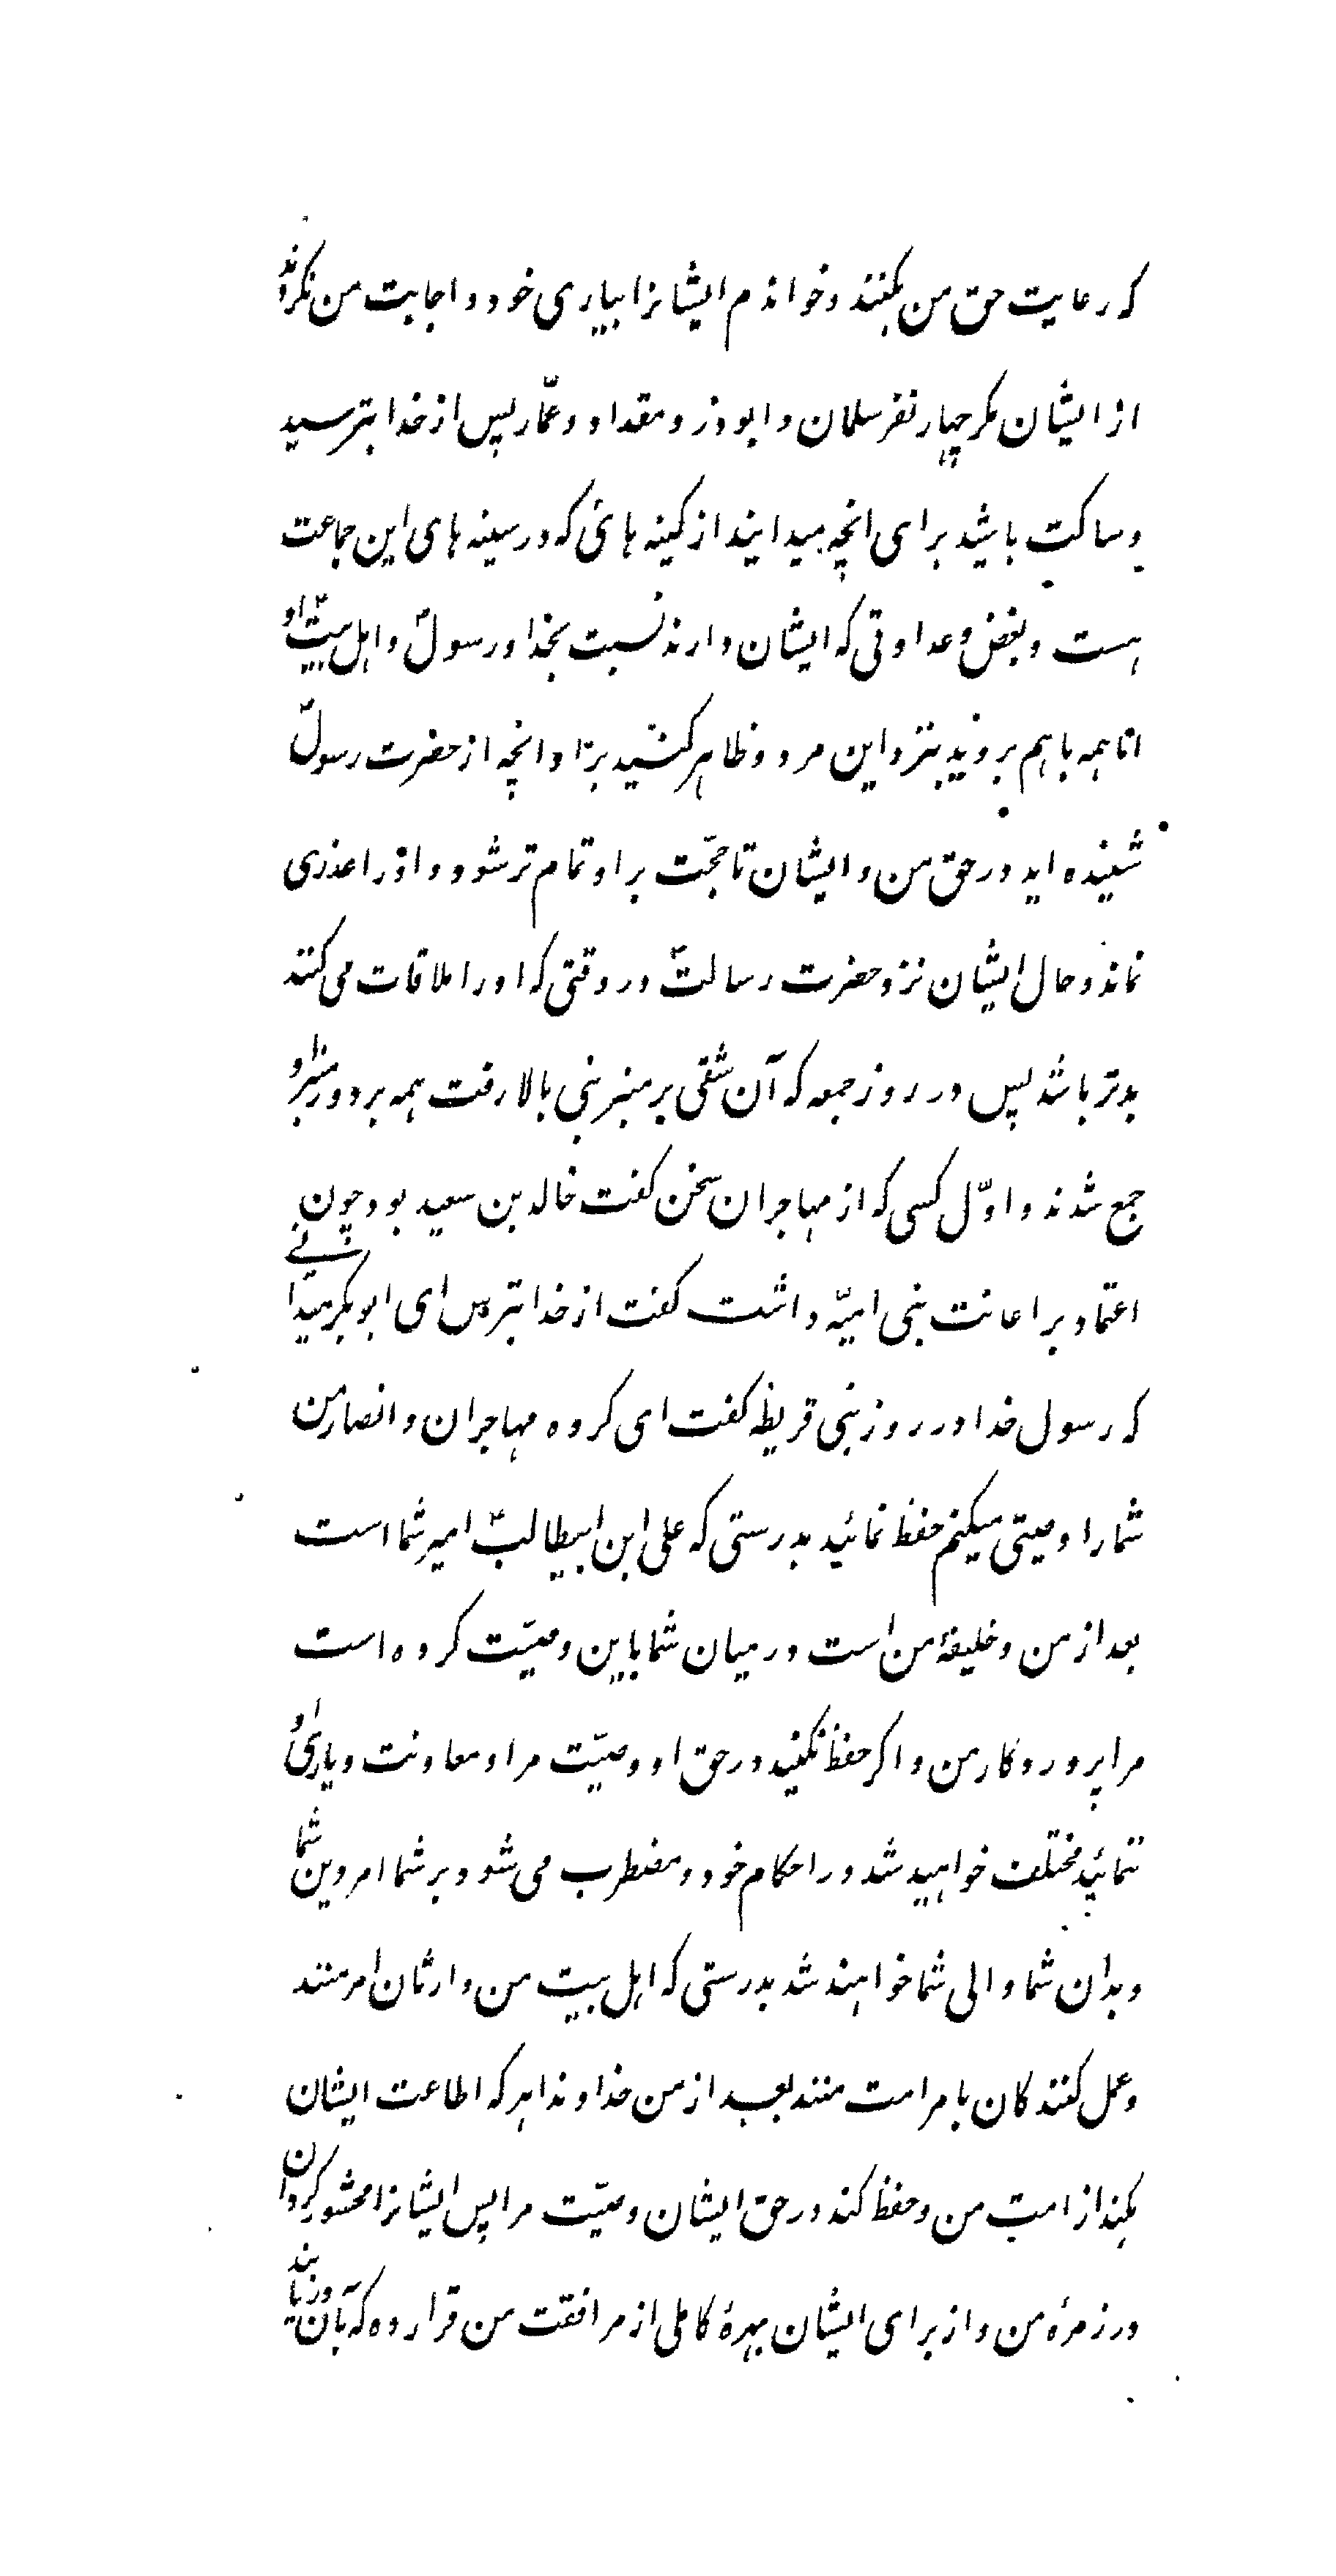 که رعایت حق من بکنند و خواندم ایشانرا بیاری خود و اجابت من نکردند
از ایشان مکر چهار نفر سلمان و ابوذر و مقداد و عمّار پس از خدا بترسید
و ساکت باشید برای انچه میدانید از کینه هائی که در سینه های این جماعت
هست و بغض و عداوتی که ایشان دارند نسبت بخدا و رسول ص و اهل بیت ع او
امّا همه باهم بروید بنزد این مرد و ظاهر کنید بر او انچه از حضرت رسول ص
شنیده اید در حق من و ایشان تا حجّت بر او تمام تر شود و او را عذری
نماند و حال ایشان نزد حضرت رسالت ص در وقتی که او را ملاقات می کنند
بدتر باشد پس در روز جمعه که آن شقی بر منبر نبی بالا رفت همه بر دور منبر او
جمع شدند و اوّل کسی که از مهاجران سخن کفت خالد بن سعید بود چون
اعتماد بر اعانت بنی امیّه داشت کفت از خدا بترس ای ابوبکر میدانے
که رسول خدا در روز بنی قریظه کفت ای کروه مهاجران و انصار من
شما را وصیتی میکنم حفظ نمائید بدرستی که علی ابن ابیطالب ع امیر شما است
بعد از من و خلیفۀ من است در میان شما باین وصیّت کرده است
مرا پروردکار من و اکر حفظ نکنید در حق او وصیّت مرا و معاونت و یاری او
ننمائید مختلف خواهید شد در احکام خود و مضطرب می شود بر شما امر دین شما
و بدان شما والی شما خواهند شد بدرستی که اهل بیت من وارثان امر منند
و عمل کنندکان بامر امت منند بعد از من خداوندا هر که اطاعت ایشان
بکند از امت من و حفظ کند در حق ایشان وصیّت مرا پس ایشانرا محشور کردان
در زمرۀ من و از برای ایشان بهرۀ کاملی از مرافقت من قرار ده که بآن دریابند